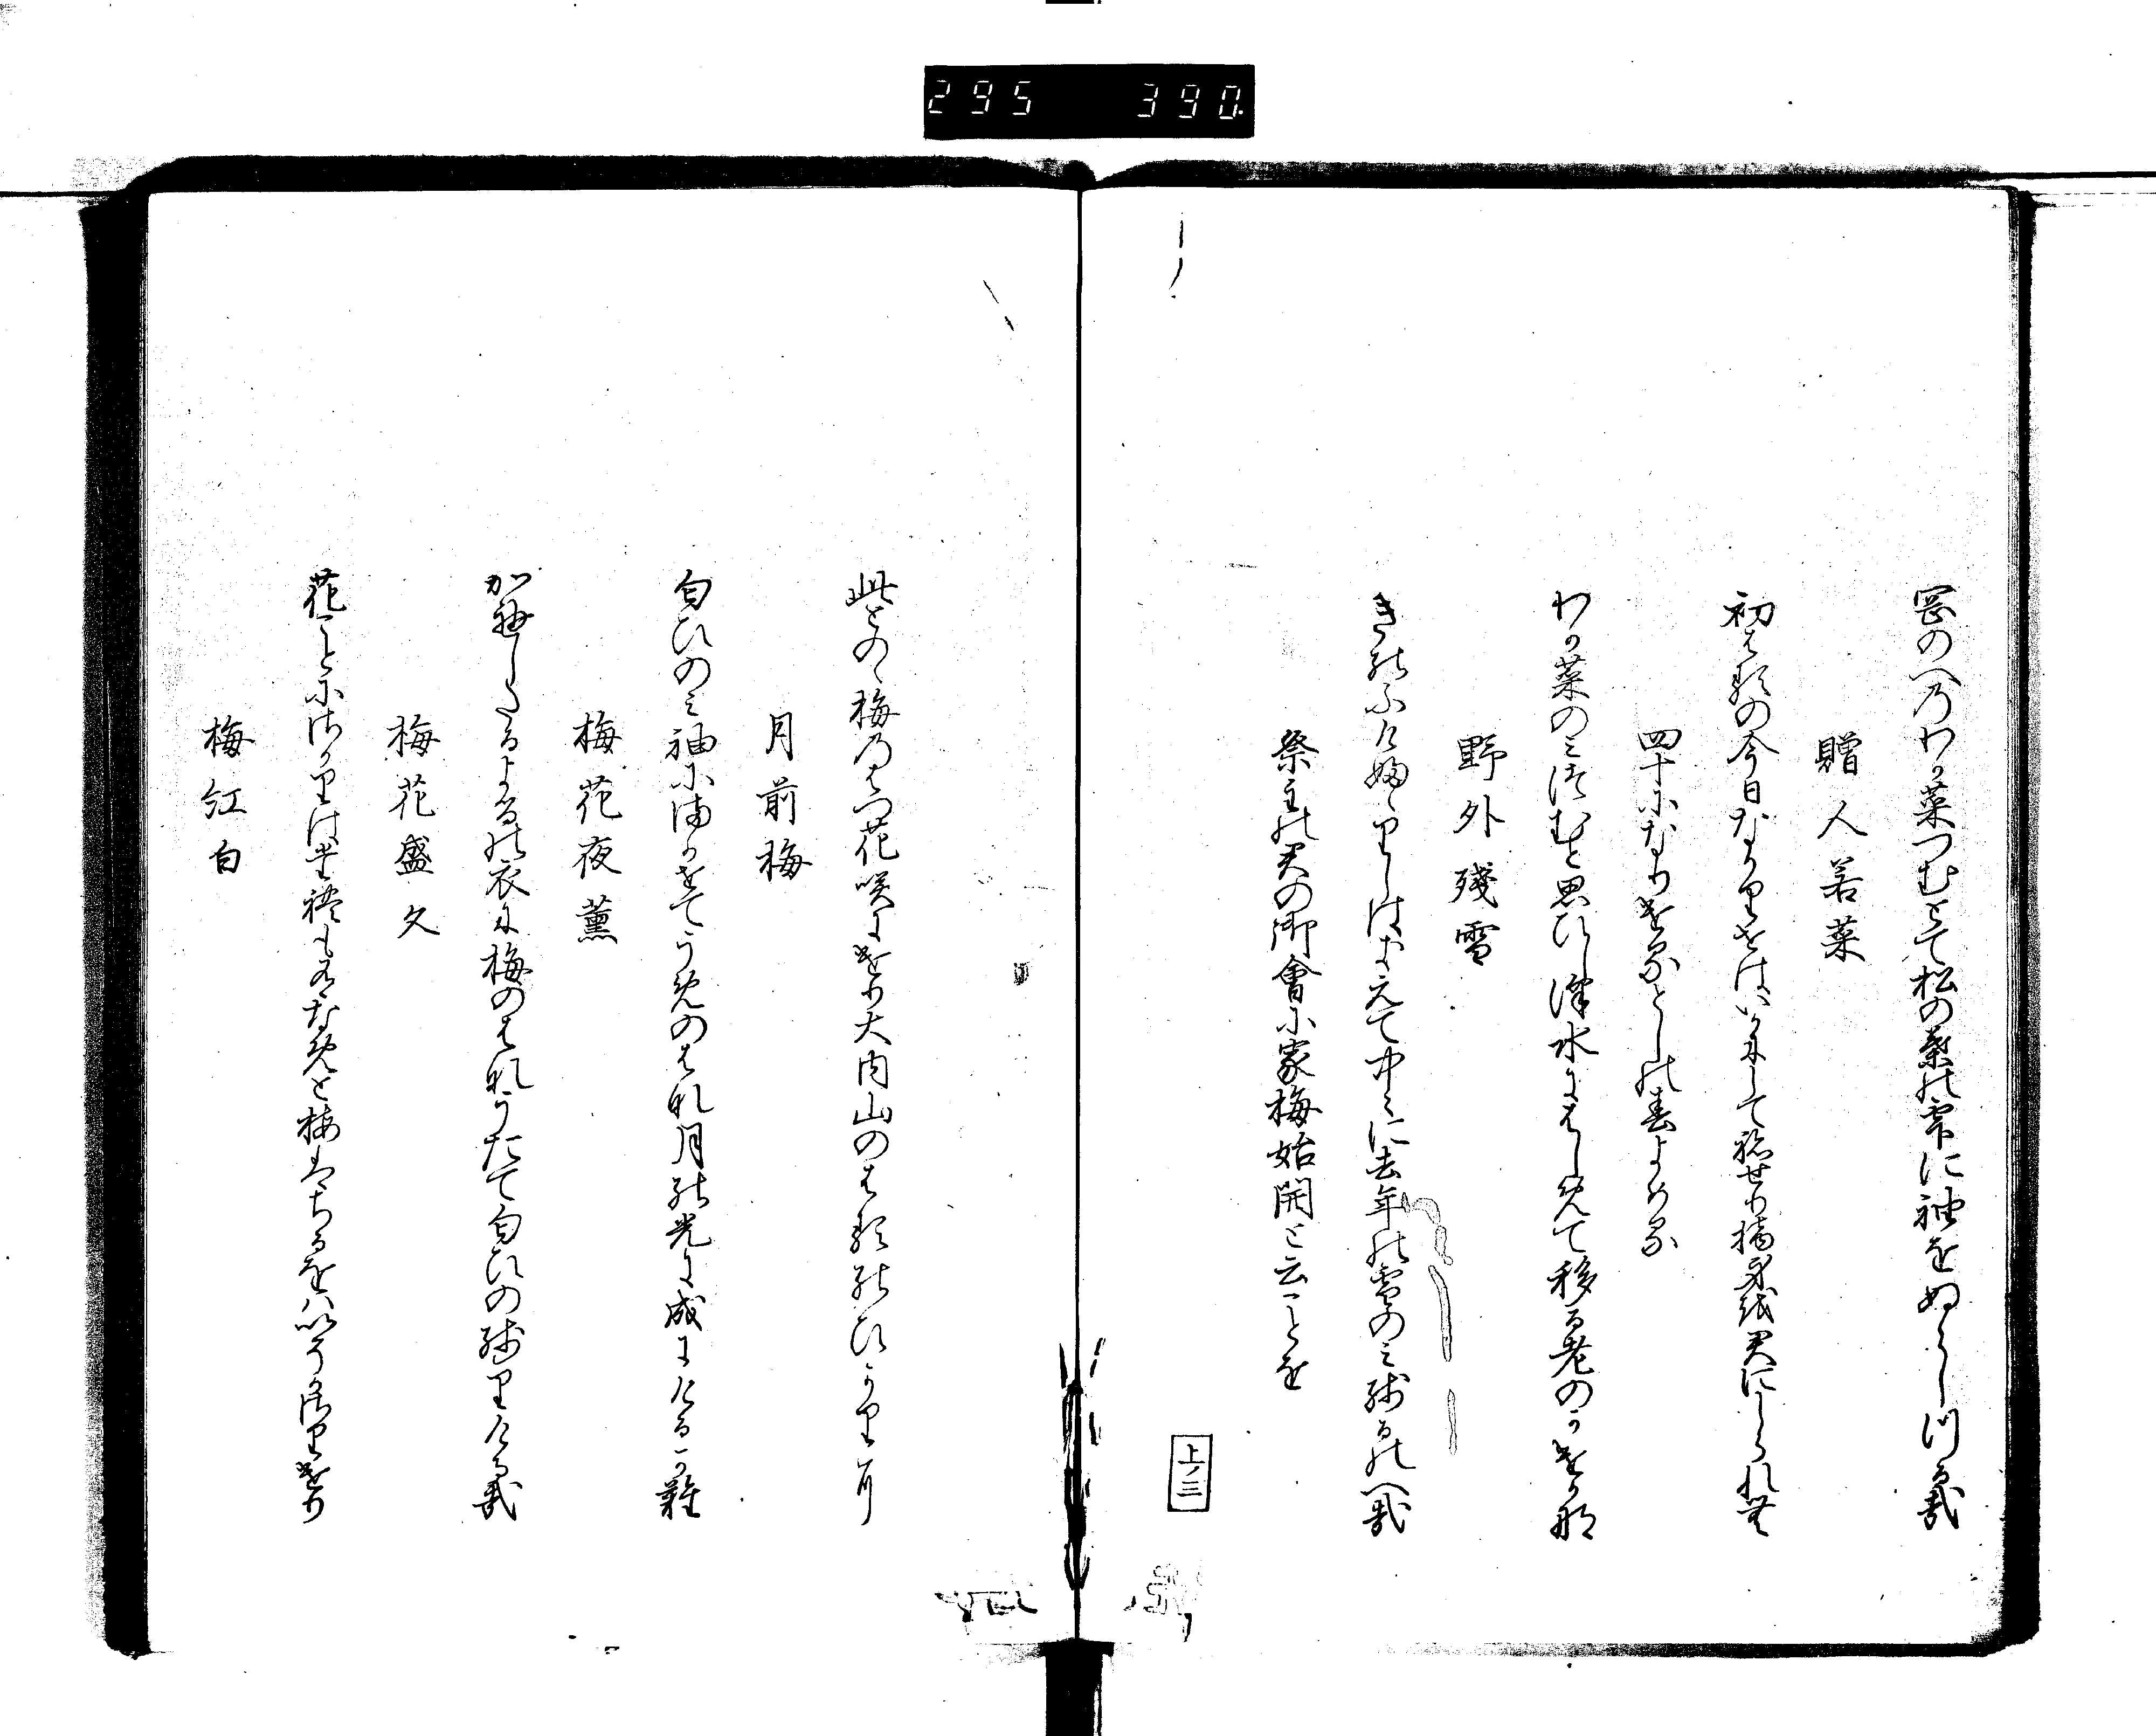 295 390
岡のへのわか菜つむとて松の葉の雫に袖をぬらしつる哉
贈人若菜
初春の今日なかりせはいかにして認せり摘身を君にしられむ
四十になりける年の春よめる
わか菜のみつむと思ひし澤水にはしめて移る老のかけかな
野外残雪
きのふけふくりしはきえて中々に去年の雪のみ残るのへ哉
祭主の君の御會に家梅始開と云ことを
上ノ三
此とのゝ梅のはつ花咲にけり大内山のはるのひかりに
月前梅
匂ひのみ袖にみちてうめのはな月の光に成にけるかな
梅花夜薫
かへしたるよるの衣に梅のはなうたて匂ひの残りける哉
梅花盛久
花ことにさかりはあれもつねなきと梅はちるをはいそかさりけり
梅紅白